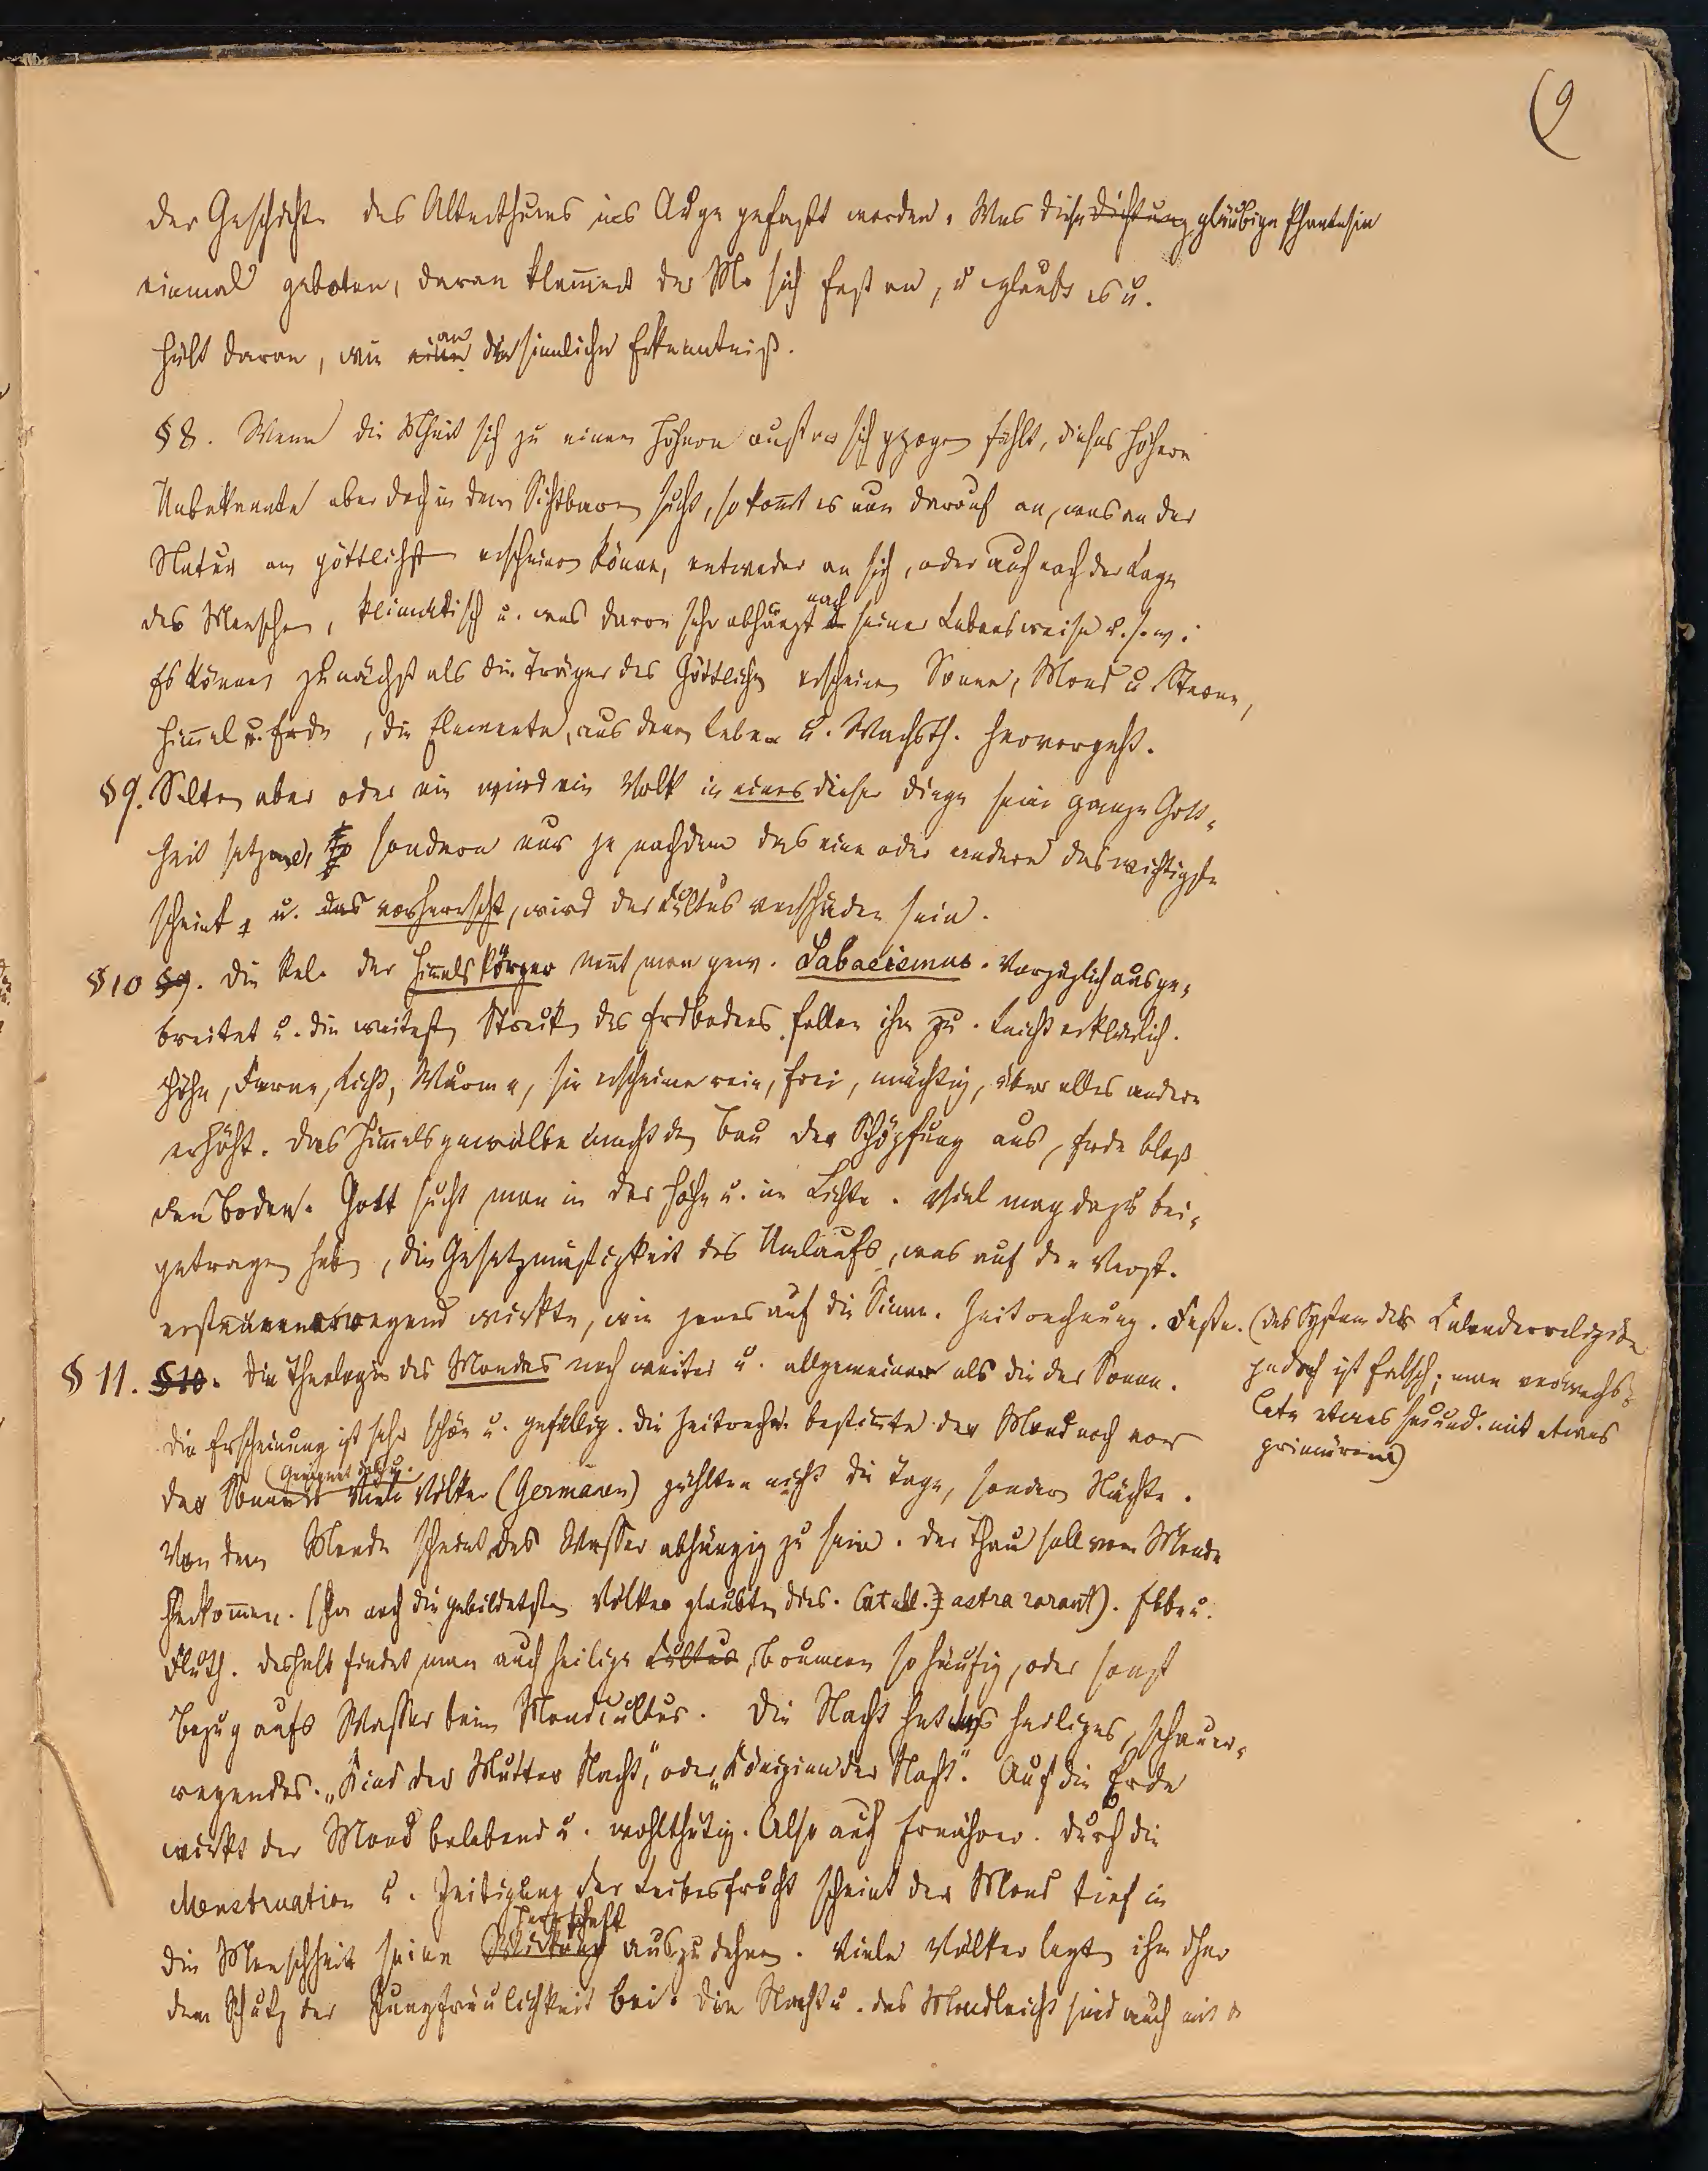 9
der Geschichte des Alterthums ins Auge gefaßt werden. Was diese Dichtung gläubige Phantasie
einmal geboten, daran klam̅ert der M. sich fest an, u glaubt es u.
hält daran, wie eine an die sinnliche Erkenntniß.
§ 8. Wenn die Mheit sich zu einem Höhern außer sich gezogen fühlt, dieses höhere
Unbekannte aber doch in dem Sichtbaren sucht, so kom̅t es nun darauf an, was an der
Natur am göttlichsten erscheinen könne, entweder an sich, oder auch nach der Lage
des Menschen, klimatisch u. was davon sehr abhängt nach seiner Lebensweise u. s. w.
Es können zunächst als die Träger des Göttlichen erscheinen Sonne, Mond u. Sterne,
Him̅el u. Erde, die Elemente, aus denen Leben u. Wachsth. hervorgeht.
§ 9. Selten aber oder nie wird ein Volk in eines dieser Dinge seine ganze Gott-
heit setzen, sondern nur je nachdem das eine oder andere das wichtigste
scheint u. das vorherrscht, wird der Cultus verschieden sein.
§ 10 §9. Die Rel. der Him̅elskörper nen̅t man gew. Sabaeismus. Vorzüglich ausge-
breitet u. die weitesten Strecken des Erdbodens fallen ihm zu. Leicht erklärlich.
Höhe, Ferne, Licht, Wärme, sie erscheinen rein, frei, mächtig, über alles andere
erhöht. Das Him̅elsgewölbe macht den Bau der Schöpfung aus, Erde bloß
den Boden. Gott sucht man in der Höhe u. im Lichte. Viel mag dazu bei-
getragen haben, die Gesetzmäßigkeit des Umlaufs, was auf den Verst.
erstaunenerregend wirkte, wie jenes auf die Sinne. Zeitrechnung. Feste. (das System der Calenderreligion
jedoch ist falsch; man verwechs-
elte etwas secund. mit etwas
primärem)
§ 11. §10. Die Theologie des Mondes noch weiter u. allgemeiner als die der Sonne.
Die Erscheinung ist sehr schön u. gefällig. Die Zeitrechn. bestim̅te der Mond noch vor
(Geeignet dazu.
der Sonne. Viele Völker (Germanen) zählten nicht die Tage, sondern Nächte.
Von dem Monde scheint das Wasser abhängig zu sein. Der Thau soll vom Monde
herkom̅en. (Ja auch die gebildetsten Völker glaubten dies. Catull. astra rorant). Ebbe u.
Fluth. Deshalb findet man auch heilige Cultus, Brunnen so häufig, oder sonst
Bezug aufs Wasser beim Mondcultus. Die Nacht hat etwas heiliges, schauer-
regendes. „Kind der Mutter Nacht," oder „Königinn der Nacht". Auf die Erde
wirkt der Mond belebend u. wohlthätig. Also auch Ernährer. Durch die
Menstruation u. Zeitigung der Leibesfrucht scheint der Mond tief in
die Menschheit seine Wirkung Herrschaft auszudehnen. Viele Völker legten ihm eher
den Schutz der Jungfräulichkeit bei. Die Nacht u. das Mondlicht sind auch mit